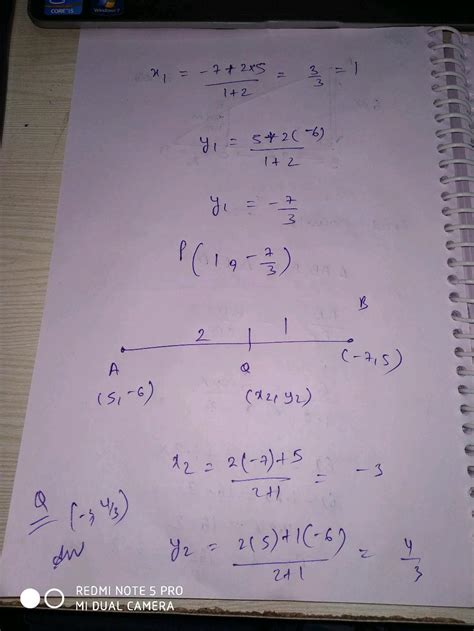 CORE i5 Windows 7
x₁ = (-7+2×5)/(1+2) = 3/3 = 1
y₁ = (5+2(-6))/(1+2)
y₁ = -7/3
P(1, -7/3)
B
2 1
A Q (-7,5)
(5,-6) (x₂, y₂)
x₂ = (2(-7)+5)/(2+1) = -3
Q (-3, 4/3)
y₂ = (2(5)+1(-6))/(2+1) = 4/3
REDMI NOTE 5 PRO
MI DUAL CAMERA